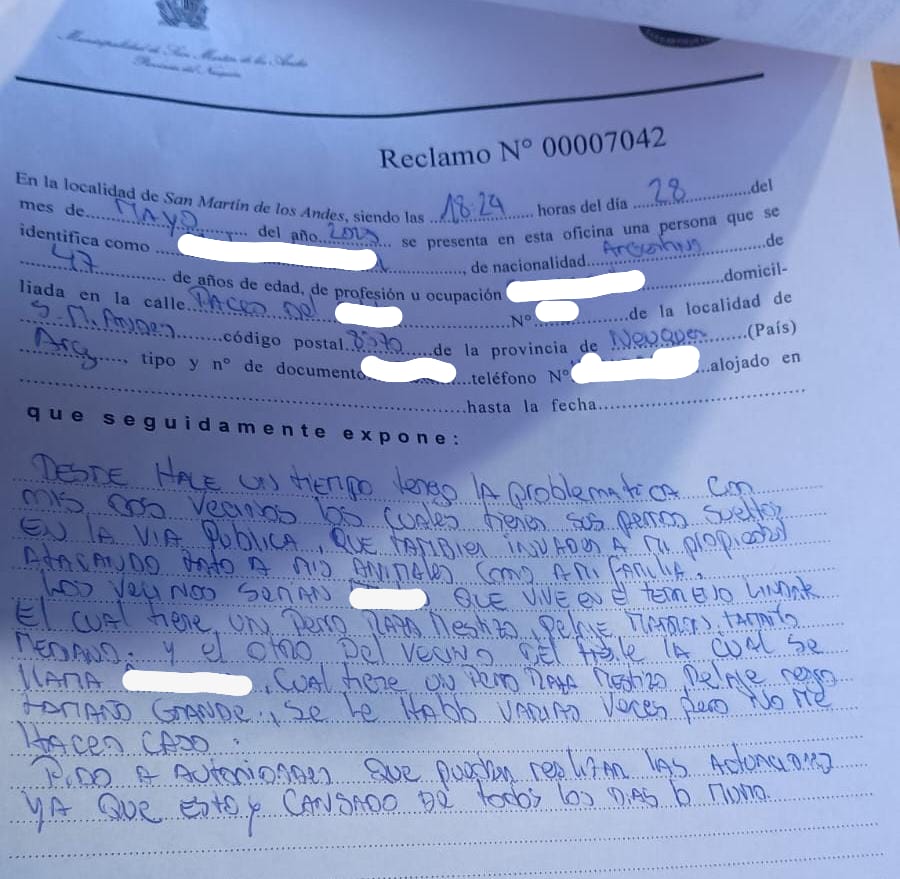 Municipalidad de San Martín de los Andes
Provincia del Neuquén
Reclamo N° 00007042
En la localidad de San Martín de los Andes, siendo las ..18:24.......... horas del día ....28..............del
mes de......MAYO.................. del año..2025.... se presenta en esta oficina una persona que se
identifica como ......................., de nacionalidad...Argentina..........de
....47............. de años de edad, de profesión u ocupación ..............domicil-
liada en la calle..PASEO DEL .................. N°..............de la localidad de
S. M. ANDES.......código postal..8370.....de la provincia de Neuquen......(País)
Arg...... tipo y n° de documento..................teléfono N°....................alojado en
.........................................................hasta la fecha..............................
que seguidamente expone:
DESDE HACE UN TIEMPO tengo LA problematica con
mis dos vecinos los cuales tienen sus perros sueltos
EN LA VIA PUBLICA, QUE TAMBIEN INVADEN A mi propiedad
ATACANDO TATO A MIS ANIMALES COMO A MI FAMILIA.
Los vecinos SERIAN QUE VIVE EN el terreno LINDANTE
El CUAL tiene, UN perro RAZA Mestizo, pelaje MARRON, TAMAÑO
MEDIANO. y el OTRO DEL VECINO DEL frente LA CUAL se
llAMA , CUAL tiene UN Perro RAZA Mestizo Pelaje negro
tAMAÑO GRANDE., Se le HABLO VARIAS Veces pero NO ME
HACEN CASO.
PIDO A AUTORIDADES QUE puedan realizar LAS ACTUACIONES
YA QUE ESTOY CANSADO DE todos los DIAS lo mismo.